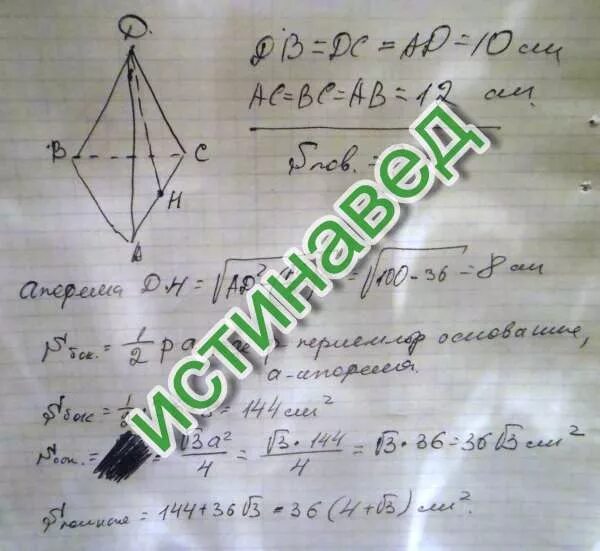 D.
B
C
H
A
DB = DC = AD = 10 см
AC = BC = AB = 12 см.
Sпов. =
апофема DH = √AD² = √100 - 36 = 8 см
Sбок. = 1/2 p a периметр основания,
a - апофема.
Sбок = 144 см²
Sосн. = √3a²/4 = √3 · 144/4 = √3 · 36 = 36√3 см²
Sполное = 144 + 36√3 = 36(4 + √3) см².
истинавед